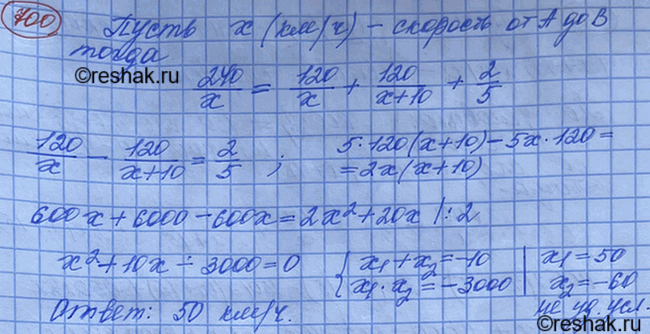 700 Пусть x (км/ч) - скорость от A до B
©reshak.ru
тогда
240/x = 120/x + 120/(x+10) + 2/5
120/x - 120/(x+10) = 2/5 ; 5·120(x+10)-5x·120=
=2x(x+10)
600x+6000-600x=2x²+20x |:2
x²+10x-3000=0 { x₁+x₂=-10 | x₁=50
x₁·x₂=-3000 | x₂=-60
Ответ: 50 км/ч. не уд. усл.
©reshak.ru